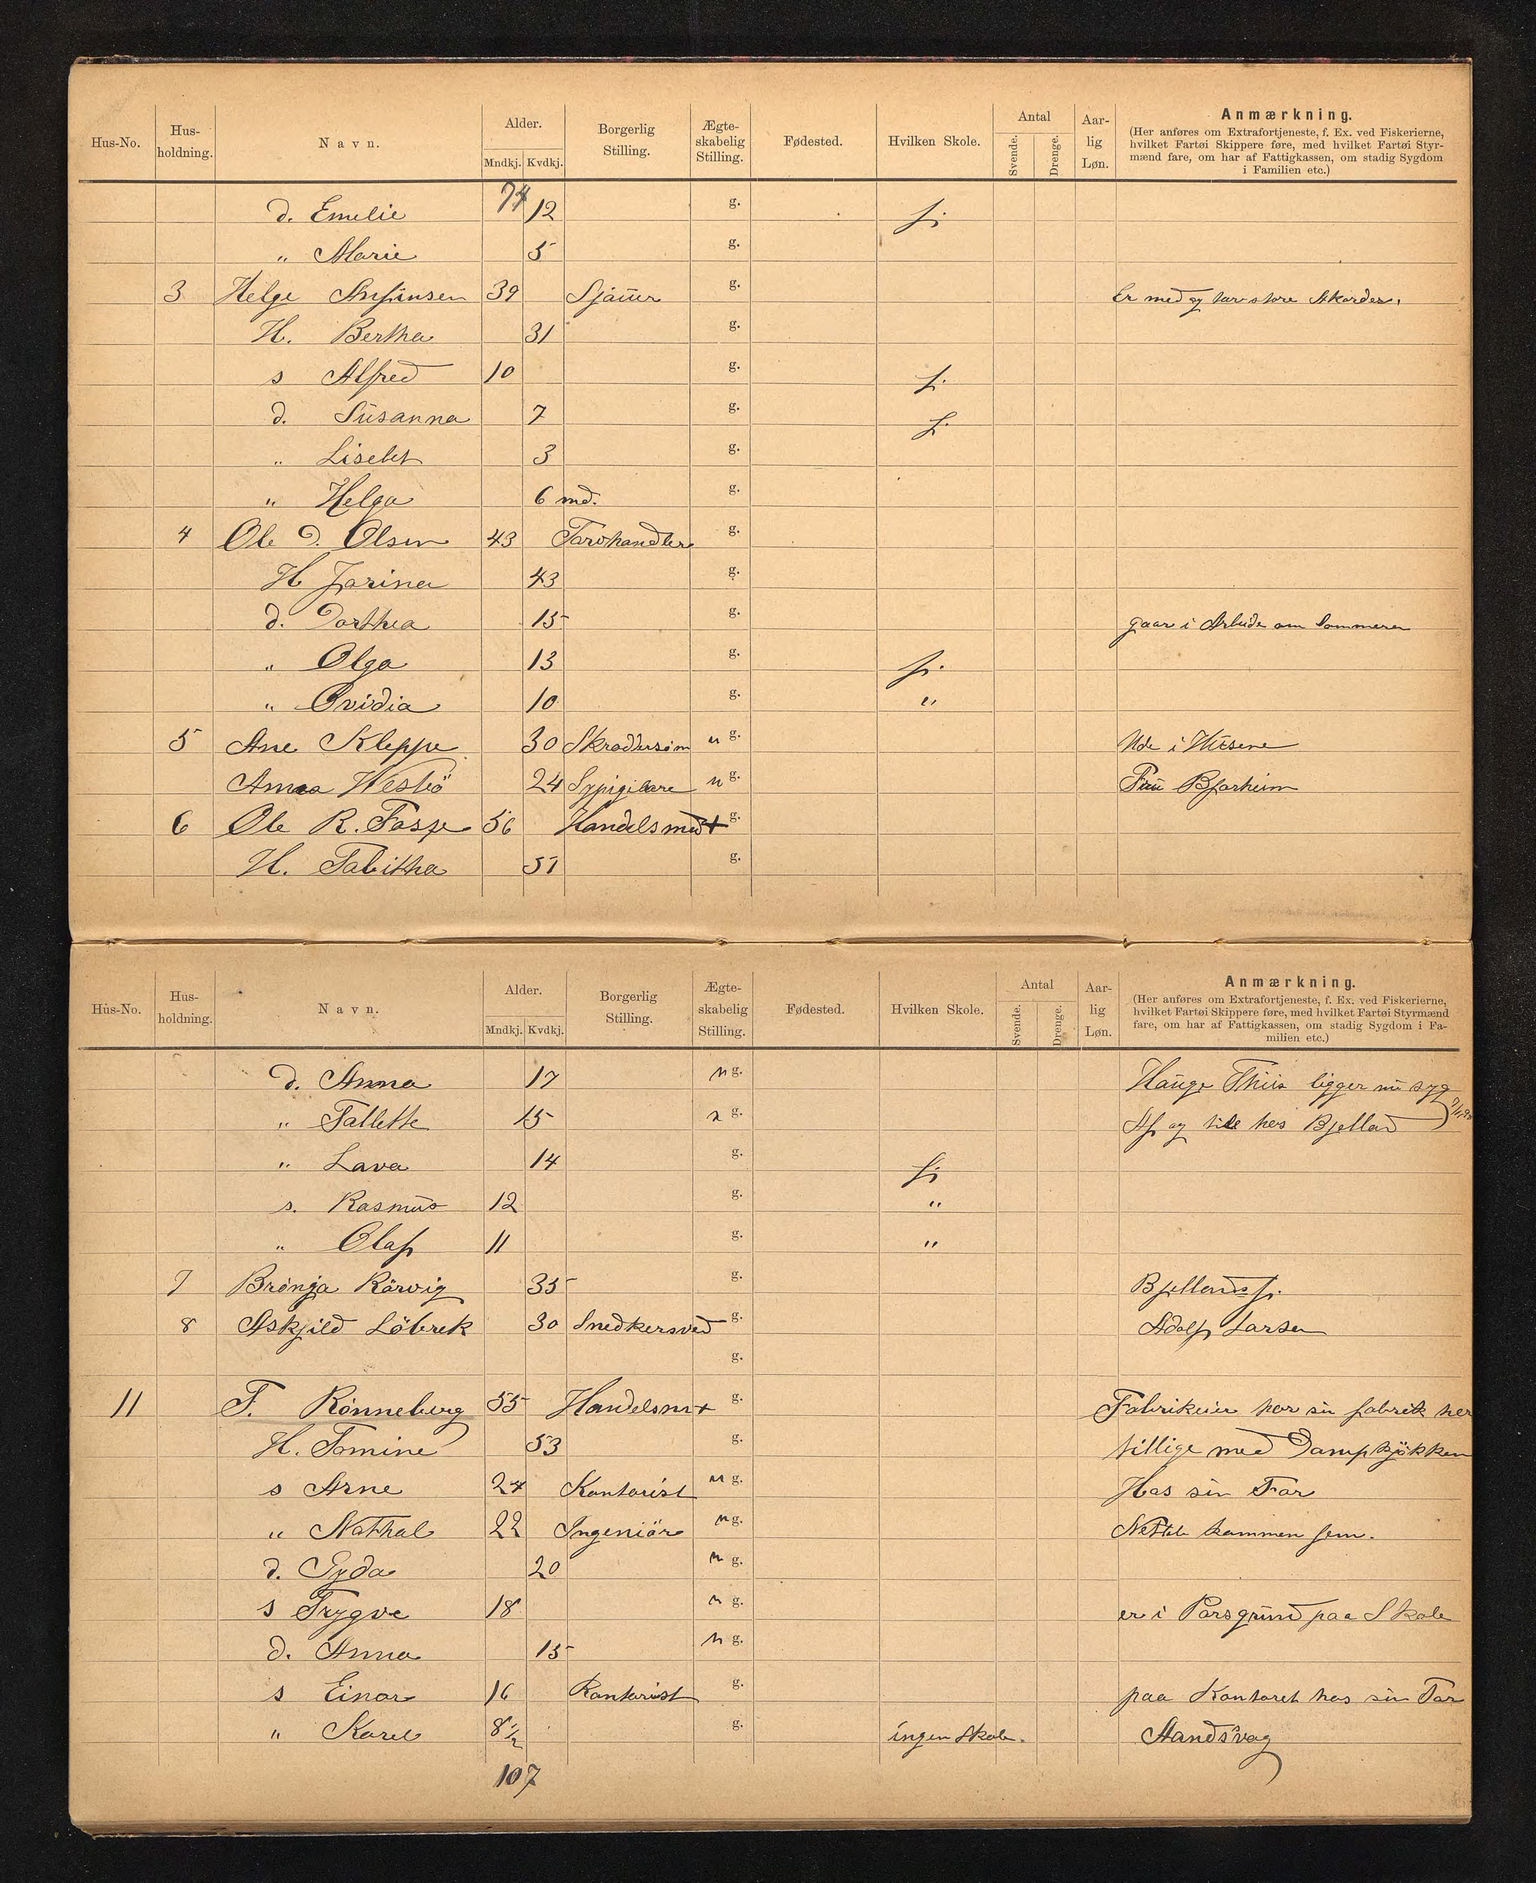 Hus-No. Hus-holdning. Navn. Alder. Mndkj. Kvdkj. Borgerlig Stilling. Ægte-skabelig Stilling. Fødested. Hvilken Skole. Antal Svende. Drenge. Aar-lig Løn. Anmærkning.
(Her anføres om Extrafortjeneste, f. Ex. ved Fiskerierne,
hvilket Fartøi Skippere føre, med hvilket Fartøi Styr-
mænd fare, om har af Fattigkassen, om stadig Sygdom
i Familien etc.)
74
d. Emelie 12 g. fr
" Marie 5 g.
3 Helge Anfinsen 39 Sjauer g. Er med og tar store Akorder.
H. Bertha 31 g.
s Alfred 10 g. fr
d. Susanna 7 g. fr
" Lisebet 3 g.
" Helga 6 md. g.
4 Ole D. Olsen 43 Torvhandler g.
H Jorina 43 g.
d. Dorthea 15 g. gaar i Arbeide om Sommeren
" Olga 13 g. fr
" Ovidia 10 g. "
5 Ane Kleppe 30 Skreddersøm u g. Ude i Husene
Anna Westbö 24 Sypige u g. Fru Bjorheim
6 Ole R. Fosse 56 Handelsmd + g.
H. Tabitha 51 g.
Hus-No. Hus-holdning. Navn. Alder. Mndkj. Kvdkj. Borgerlig Stilling. Ægte-skabelig Stilling. Fødested. Hvilken Skole. Antal Svende. Drenge. Aar-lig Løn. Anmærkning.
(Her anføres om Extrafortjeneste, f. Ex. ved Fiskerierne,
hvilket Fartøi Skippere føre, med hvilket Fartøi Styrmænd
fare, om har af Fattigkassen, om stadig Sygdom i Fa-
milien etc.)
d. Anna 17 u g. Hauge Thiis ligger nu syg
" Tallette 15 u g. Af og til hos Bjelland
" Lava 14 g. fr
s. Rasmus 12 g. "
" Olaf 11 g. "
7 Brönja Rörvig 35 g. Bjellands f.
8 Askjild Löbrek 30 Snedkersved g. Adolf Larsen
g.
11 F. Rønneberg 55 Handelsm + g. Fabrikeier har sin fabrik her
H. Tomine 53 g. tillige med Dampkjökken
s Arne 24 Kontorist u g. Hos sin Far
" Nathal 22 Ingeniör u g. kommen hjem.
d. Gyda 20 u g.
s Trygve 18 u g. er i Porsgrund paa Skole
d. Anna 15 u g.
s Einar 16 Kontorist g. paa Kontoret hos sin Far
" Karl 8 1/2 g. ingen Skole. Aandsvag
107